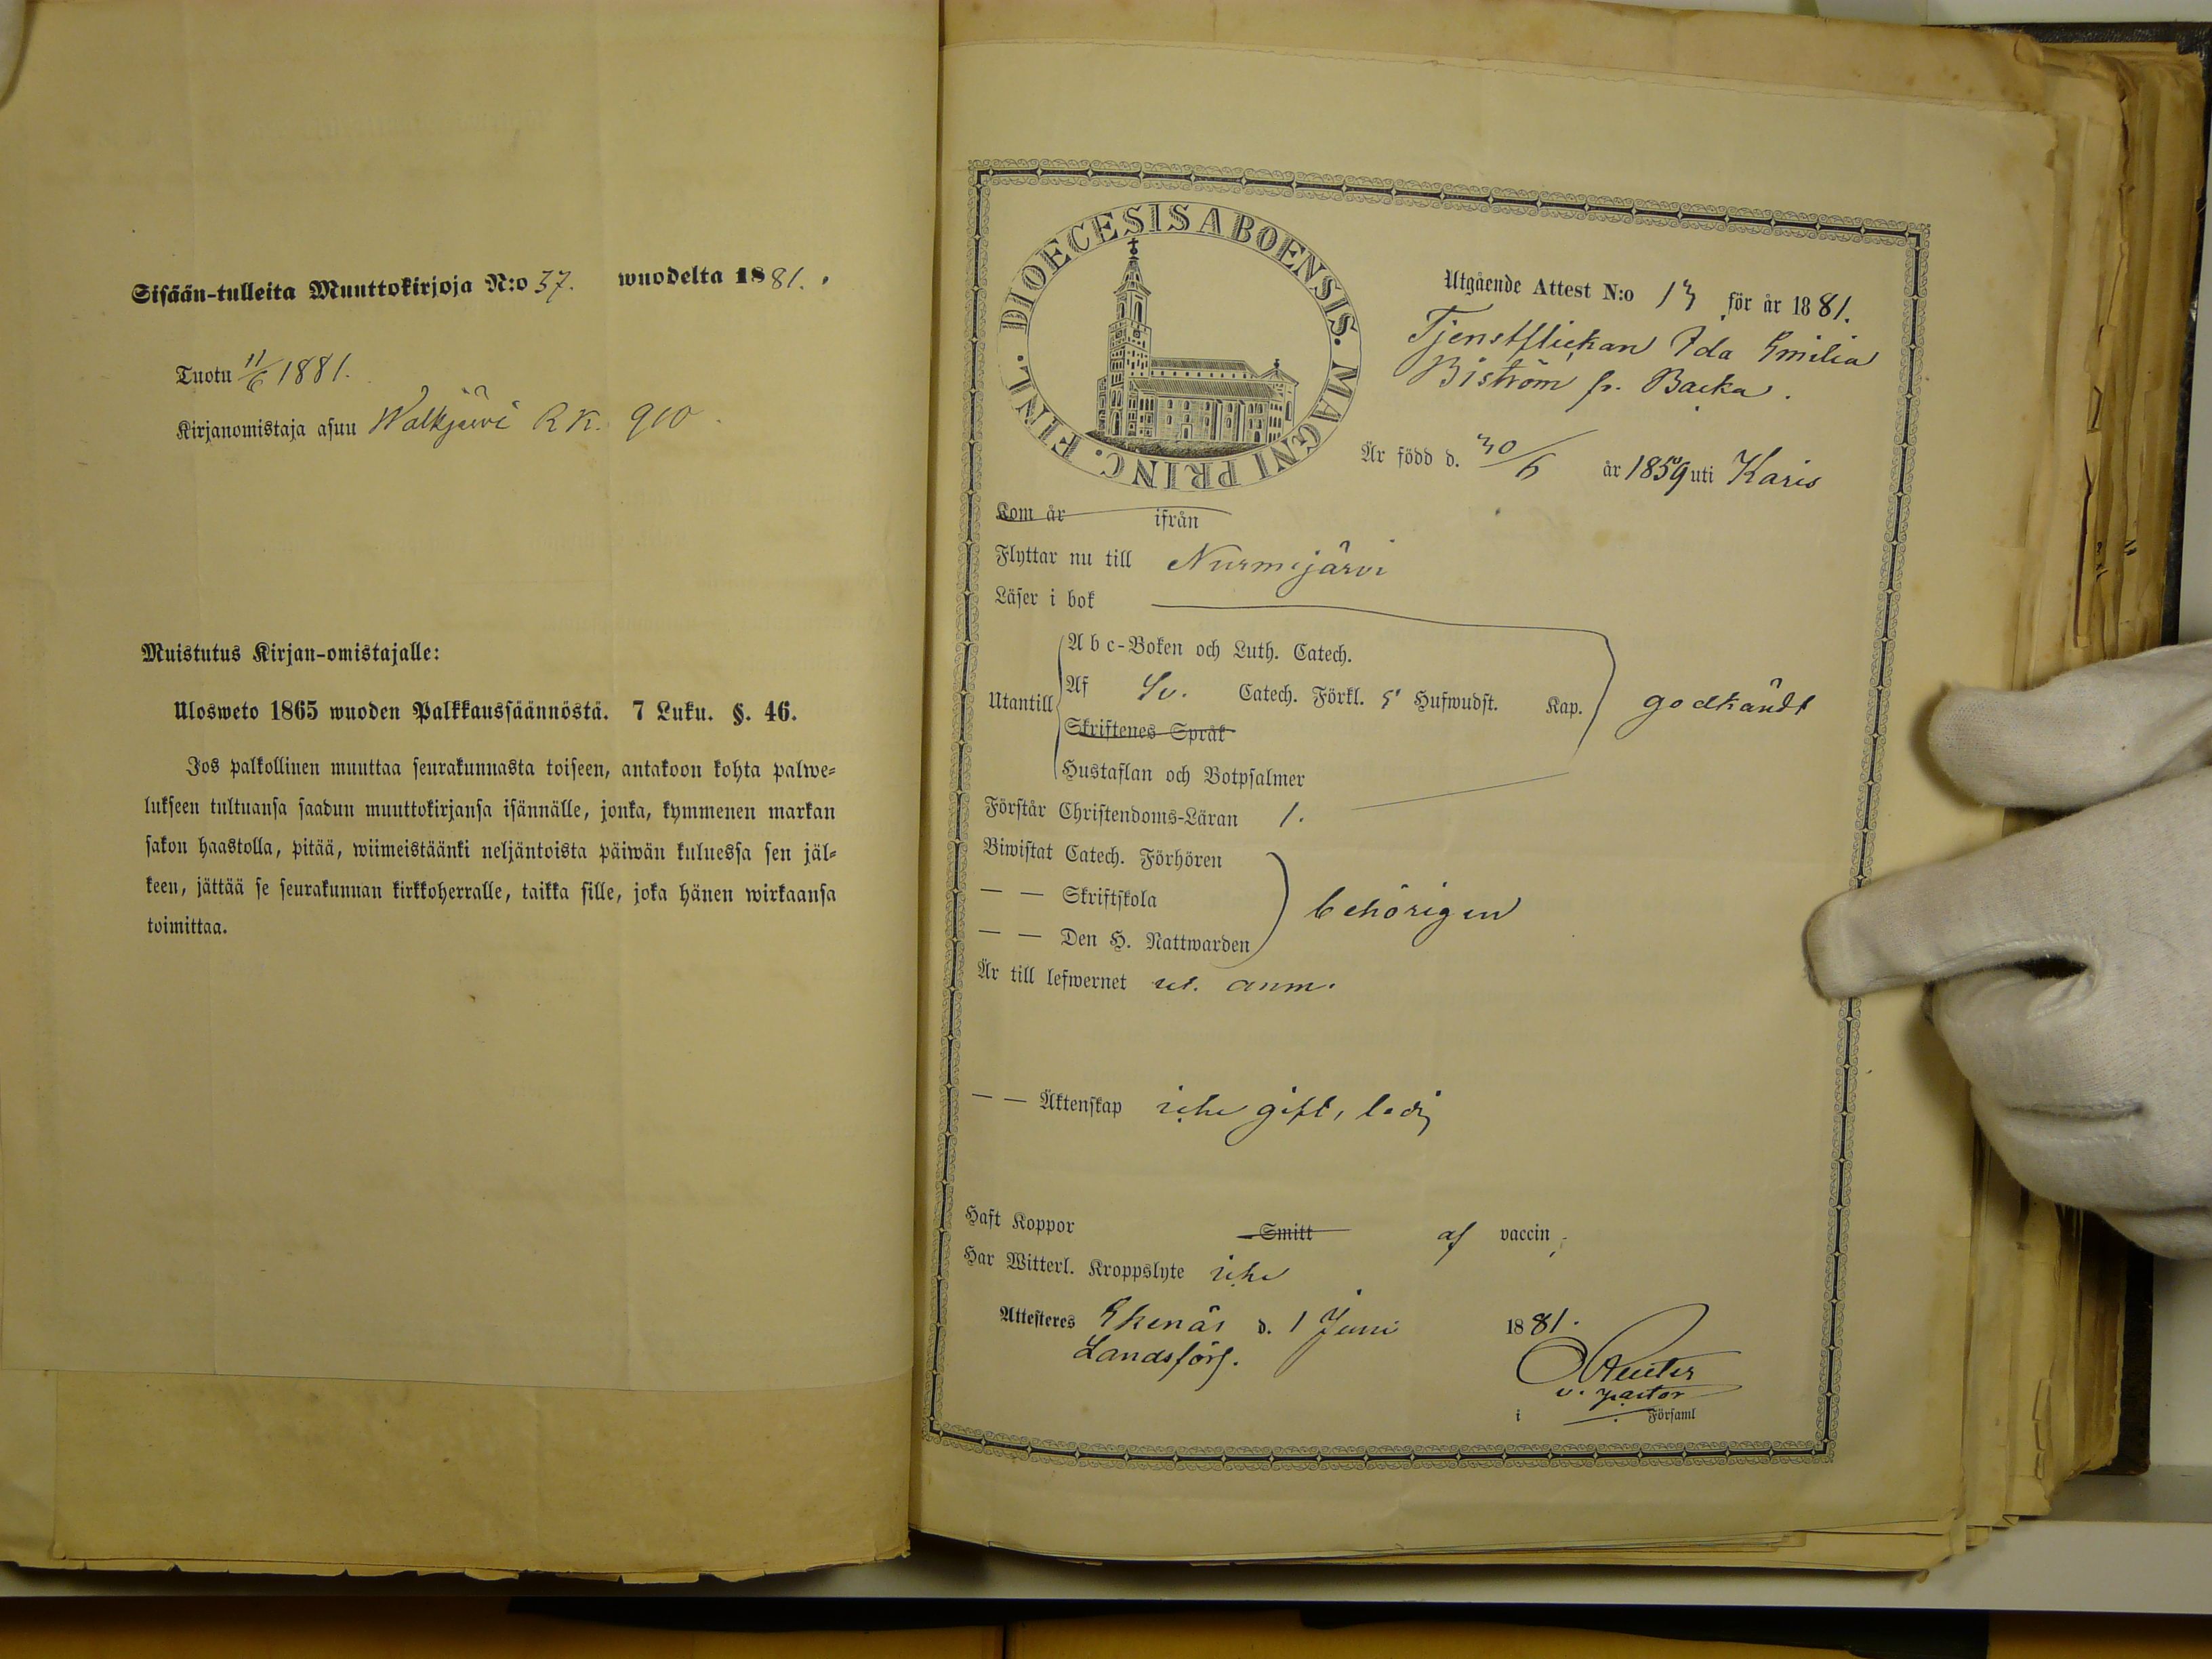 Sisään-tulleita Muuttokirjoja N:o 37. wuodelta 1881.
Tuotu 11/6 1881.
Kirjanomistaja asuu Walkjärvi R K. 910
Muistutus Kirjan-omistajalle:
Ulosweto 1865 wuoden Palkkaussäännöstä. 7 Luku. §. 46.
Jos palkollinen muuttaa seurakunnasta toiseen, antakoon kohta palwe=
lukseen tultuansa saadun muuttokirjansa isännälle, jonka, kymmenen markan
sakon haastolla, pitää, wiimeistäänki neljäntoista päiwän kuluessa sen jäl=
keen, jättää se seurakunnan kirkkoherralle, taikka sille, joka hänen wirkaansa
toimittaa.
DIOECESIS ABOENSIS. MAGNI PRINC. FINL.
Utgående Attest N:o 13 för år 1881.
Tjenstflickan Ida Emilia
Biström fr. Backa.
Är född d. 30/6 år 1859 uti Karis
Kom år ifrån
Flyttar nu till Nurmijärvi
Läser i bok
Utantill
A b c-Boken och Luth. Catech.
Af Sv. Catech. Förkl. 5 Hufwudst. Kap. godkändt
Skriftenes Språk
Hustaflan och Botpsalmer
Förstår Christendoms-Läran 1.
Biwistat Catech. Förhören
— — Skriftskola behörigen
— — Den H. Nattwarden
Är till lefwernet ut. anm.
— — Äktenskap icke gift, ledig
Haft Koppor Smitt af vaccin
Har Witterl. Kroppslyte icke
Attesteres Ekenäs d. 1 Juni 1881.
Landsförs.
Reuter
v. pastor
i Församl